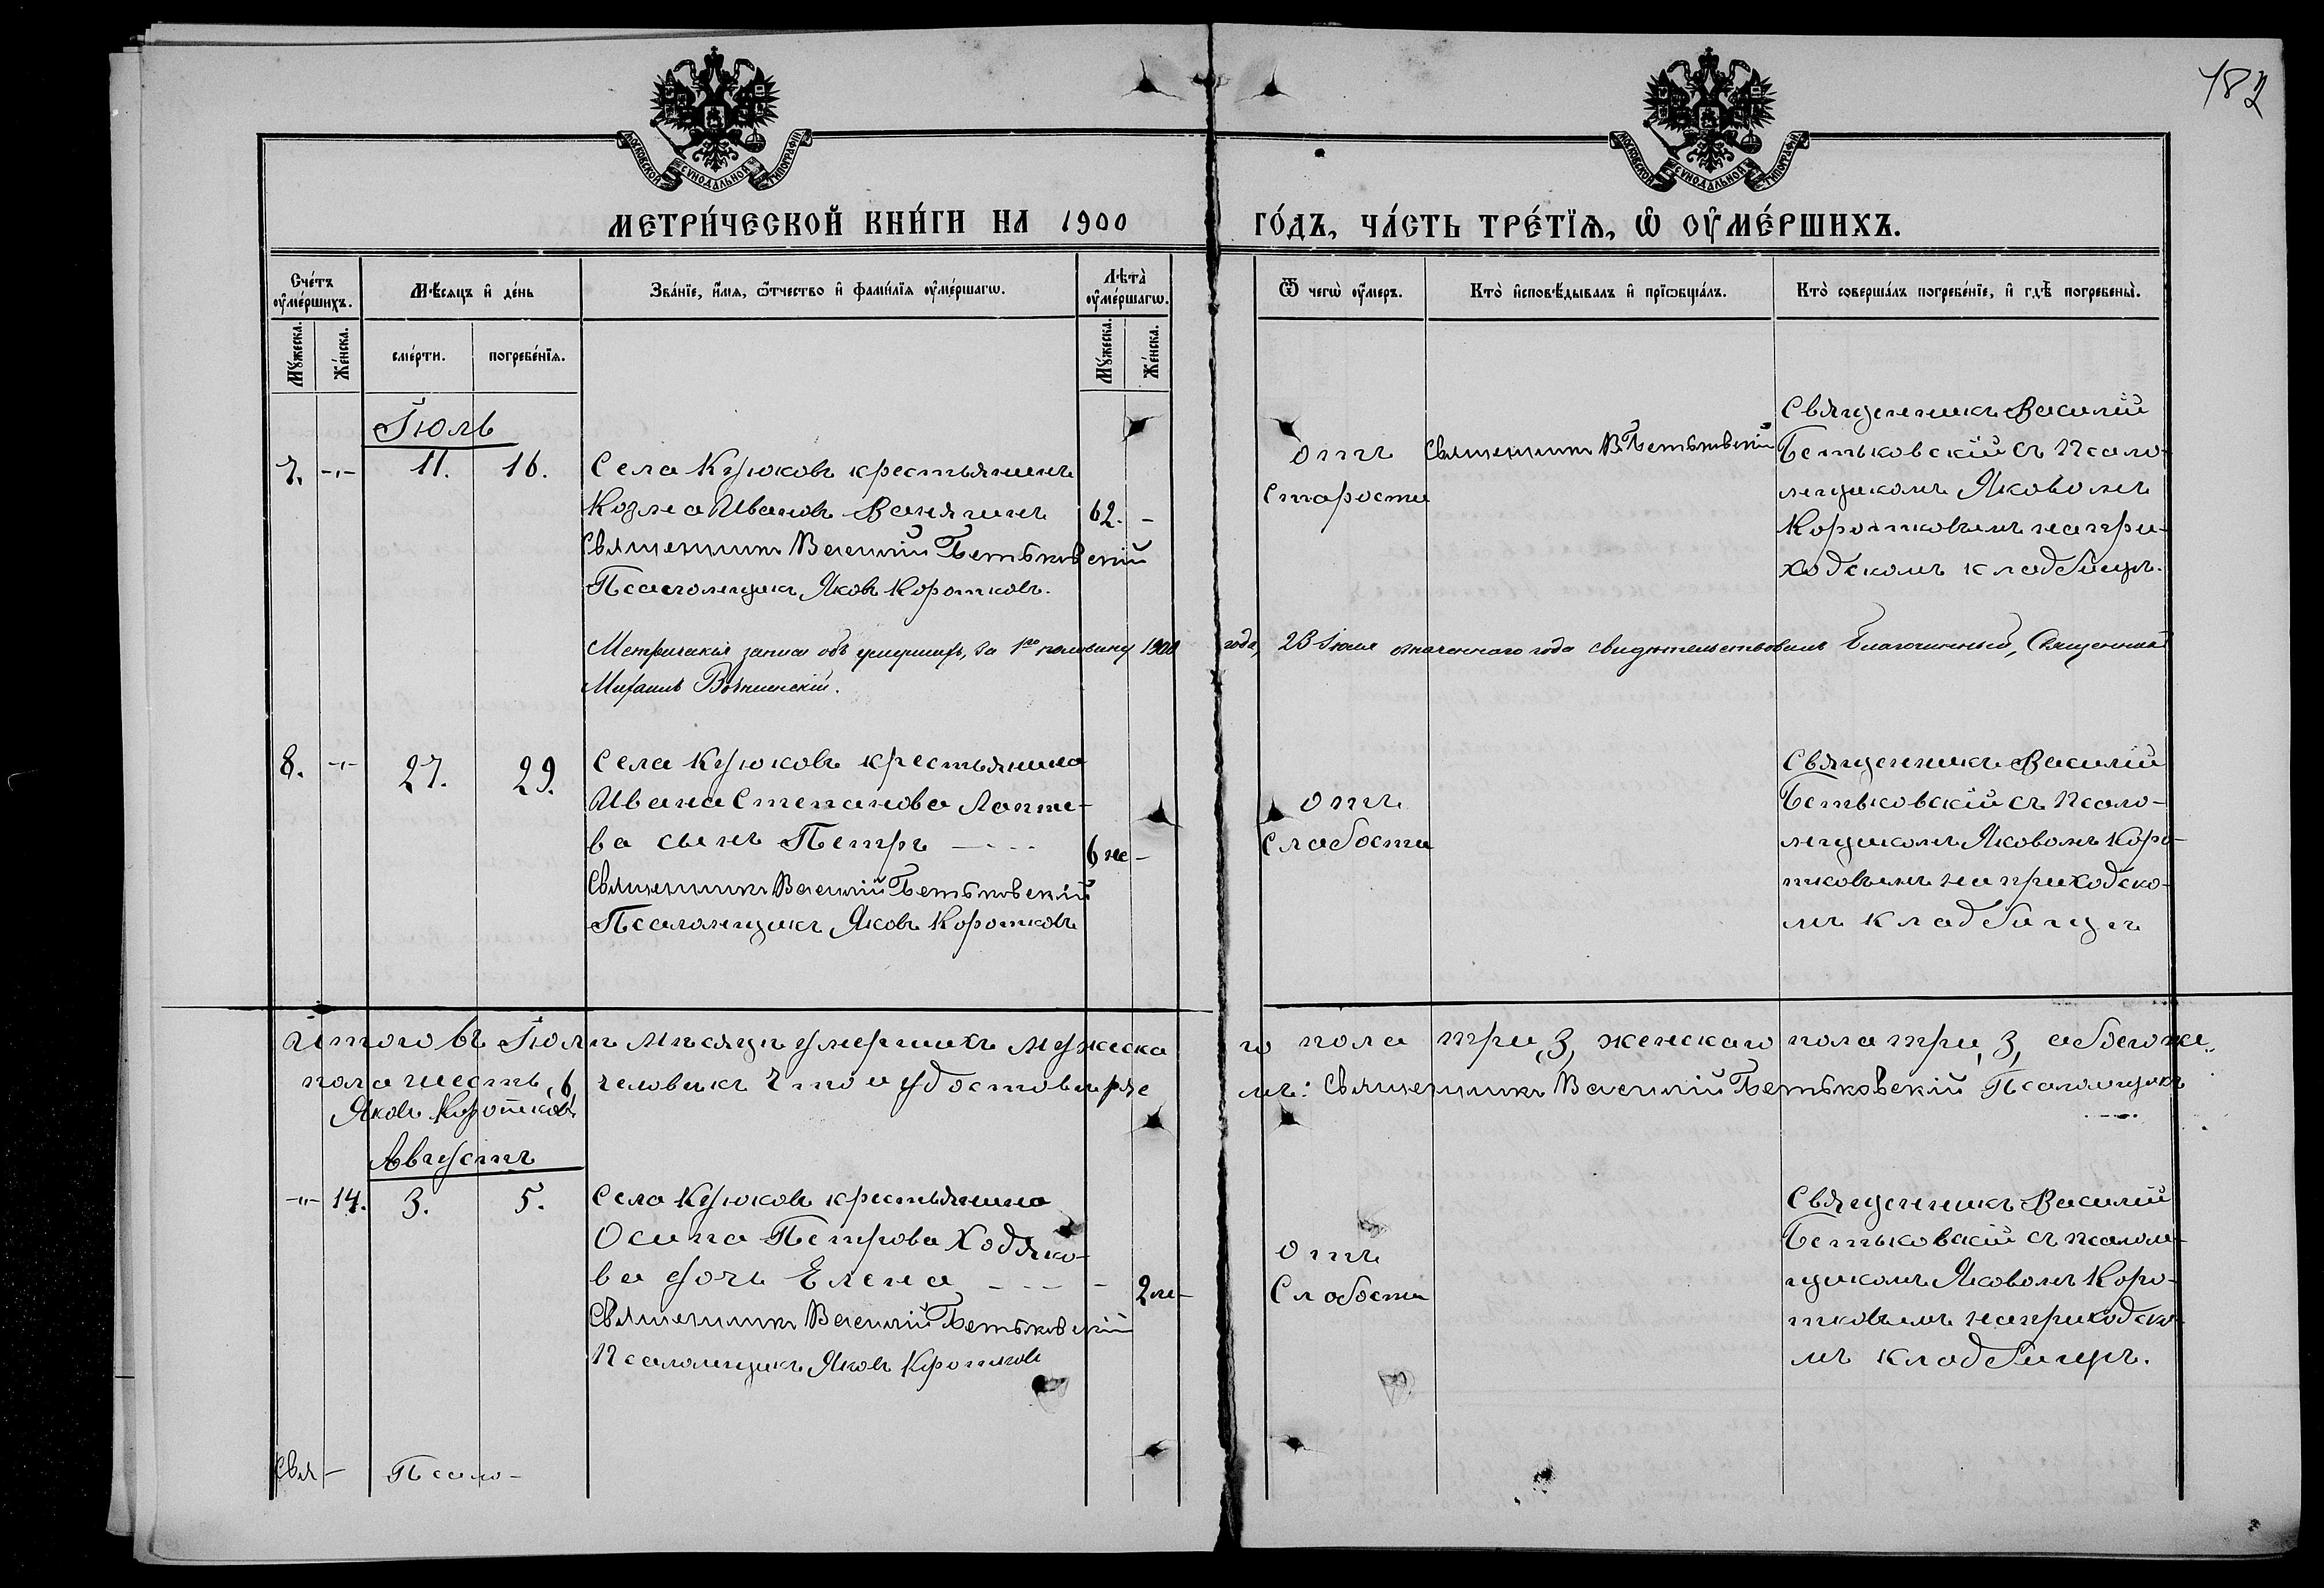 182
МОСКОВСКОЙ СѴНОДАЛЬНОЙ ТИПОГРАФІИ
МОСКОВСКОЙ СѴНОДАЛЬНОЙ ТИПОГРАФІИ
МЕТРИ́ЧЕСКОЙ КНИ́ГИ НА 1900 ГО́ДЪ, ЧА́СТЬ ТРЕ́ТЇѦ, Ѡ҆ ОУ҆МЕ́РШИХЪ.
Сче́тъ оу҆ме́ршихъ.
Мѣ́сяцъ и҆ де́нь
Зва́нїе, и҆́мѧ, ѻ҆́тчество и҆ фамі́лїѧ оу҆ме́ршагѡ.
Лѣ́та оу҆ме́ршагѡ.
Ѿ чегѡ̀ оу҆́меръ.
Кто̀ и҆сповѣ́дывалъ и҆ прїѡбща́лъ.
Кто̀ соверша́лъ погребе́нїе, и҆ гдѣ̀ погребены̀.
Мꙋ́жеска.
Же́нска.
сме́рти.
погребе́нїѧ.
Мꙋ́жеска.
Же́нска.
Іюль
7. -"- 11. 16.
Села Крюковъ крестьянинъ
Козма Ивановъ Ванягинъ 62. -
Священникъ Василій Бетьковскій
Псаломщикъ Яковъ Коротковъ.
отъ
старости
Священникъ В. Бетьковскій
Священникъ Василій
Бетьковскій съ псало-
мщикомъ Яковомъ
Коротковымъ на при-
ходскомъ кладбищѣ.
Метрическія записи объ умершихъ, за 1ю половину 1900 года, 28 Іюля означеннаго года свидѣтельствовалъ благочинный, Священникъ
Михаилъ
8. -"- 27. 29.
Села Крюковъ крестьянина
Ивана Степанова Лапте-
ва сынъ Петръ 6 не -
Священникъ Василій Бетьковскій
Псаломщикъ Яковъ Коротковъ
отъ
слабости
Священникъ Василій
Бетьковскій съ псало-
мщикомъ Яковомъ Коро-
тковымъ на приходско-
мъ кладбищѣ
Итого въ Іюлѣ мѣсяцѣ умершихъ мужеска
го пола три, 3, женскаго пола три, 3, а обоего же
пола шесть, 6, человѣкъ Что и удостовѣряе
мъ: Священникъ Василій Бетьковскій Псаломщикъ
Яковъ Коротковъ
Августъ
-"- 14. 3. 5.
Села Крюковъ крестьянина
Осипа Петрова Ходяко-
ва дочь Елена - 2 м -
Священникъ Василій Бетьковскій
Псаломщикъ Яковъ Коротковъ
отъ
слабости
Священникъ Василій
Бетьковскій съ псалом-
щикомъ Яковомъ Коро-
тковымъ на приходско-
мъ кладбищѣ.
Свя- Псало-